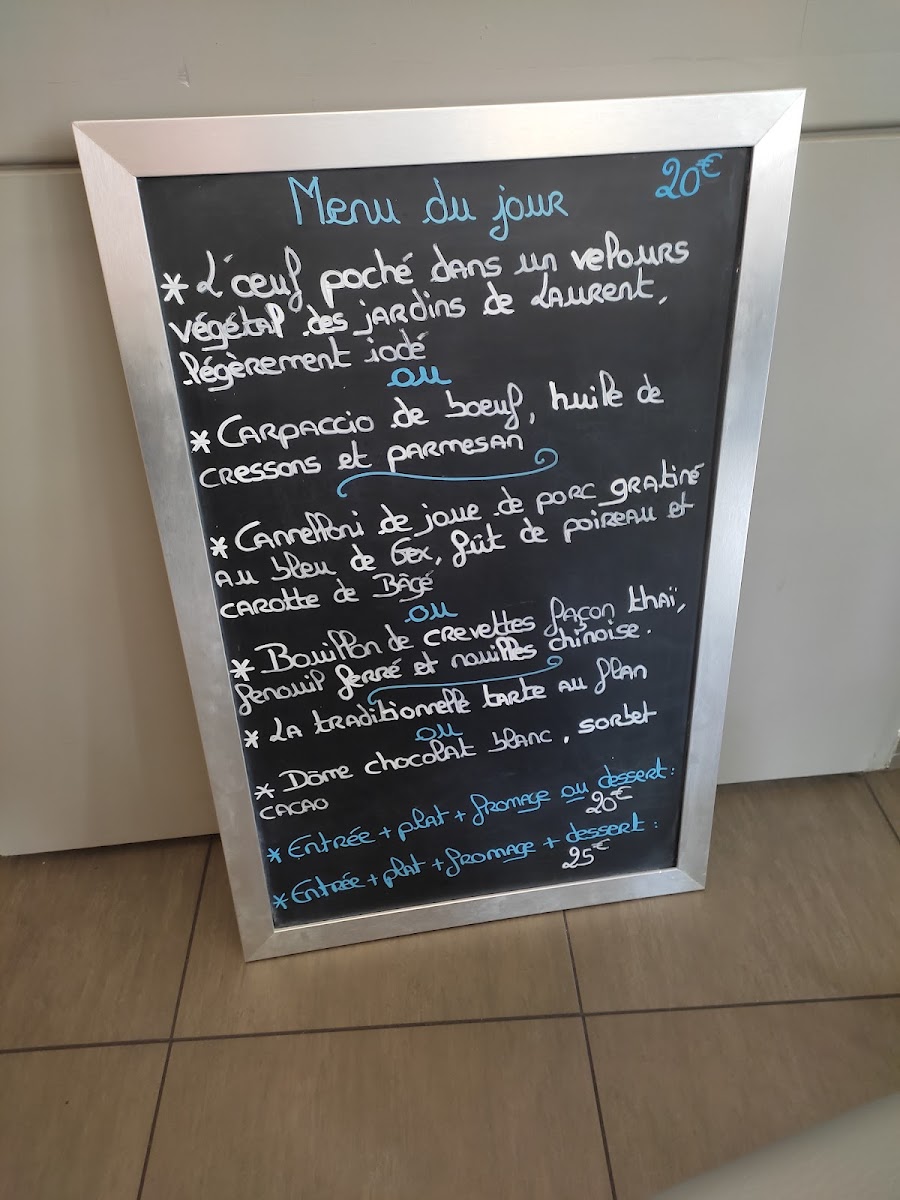 Menu du jour 20€
* L'œuf poché dans un velours
végétal des jardins de Laurent,
légèrement iodé
ou
* Carpaccio de boeuf, huile de
cressons et parmesan
* Cannelloni de joue de porc gratiné
au bleu de Gex, fût de poireau et
carotte de Bâgé
ou
* Bouillon de crevettes façon thaï,
fenouil ferré et nouilles chinoise.
* La traditionnelle tarte au flan
ou
* Dôme chocolat blanc, sorbet
cacao
* Entrée + plat + fromage ou dessert :
20€
* Entrée + plat + fromage + dessert :
25€